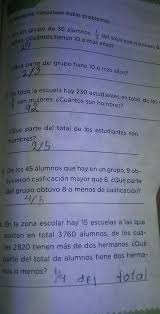 resuelven estos problemas.
En un grupo de 36 alumnos,
¿Cuántos tienen 10 o más años?
24
¿Qué parte del grupo tiene 10 o más años?
2/3
En toda la escuela hay 230 estudiantes en total, de las
son mujeres. ¿Cuántos son hombres?
92
¿Qué parte del total de los estudiantes son
hombres?
2/5
De los 45 alumnos que hay en un grupo, 9 ob-
tuvieron calificación mayor que 8. ¿Qué parte
del grupo obtuvo 8 o menos de calificación?
4/5
En la zona escolar hay 15 escuelas a las que
asisten en total 3760 alumnos, de los cua-
les 2820 tienen más de dos hermanos. ¿Qué
parte del total de alumnos tiene dos herma-
nos o menos?
1/4 del total